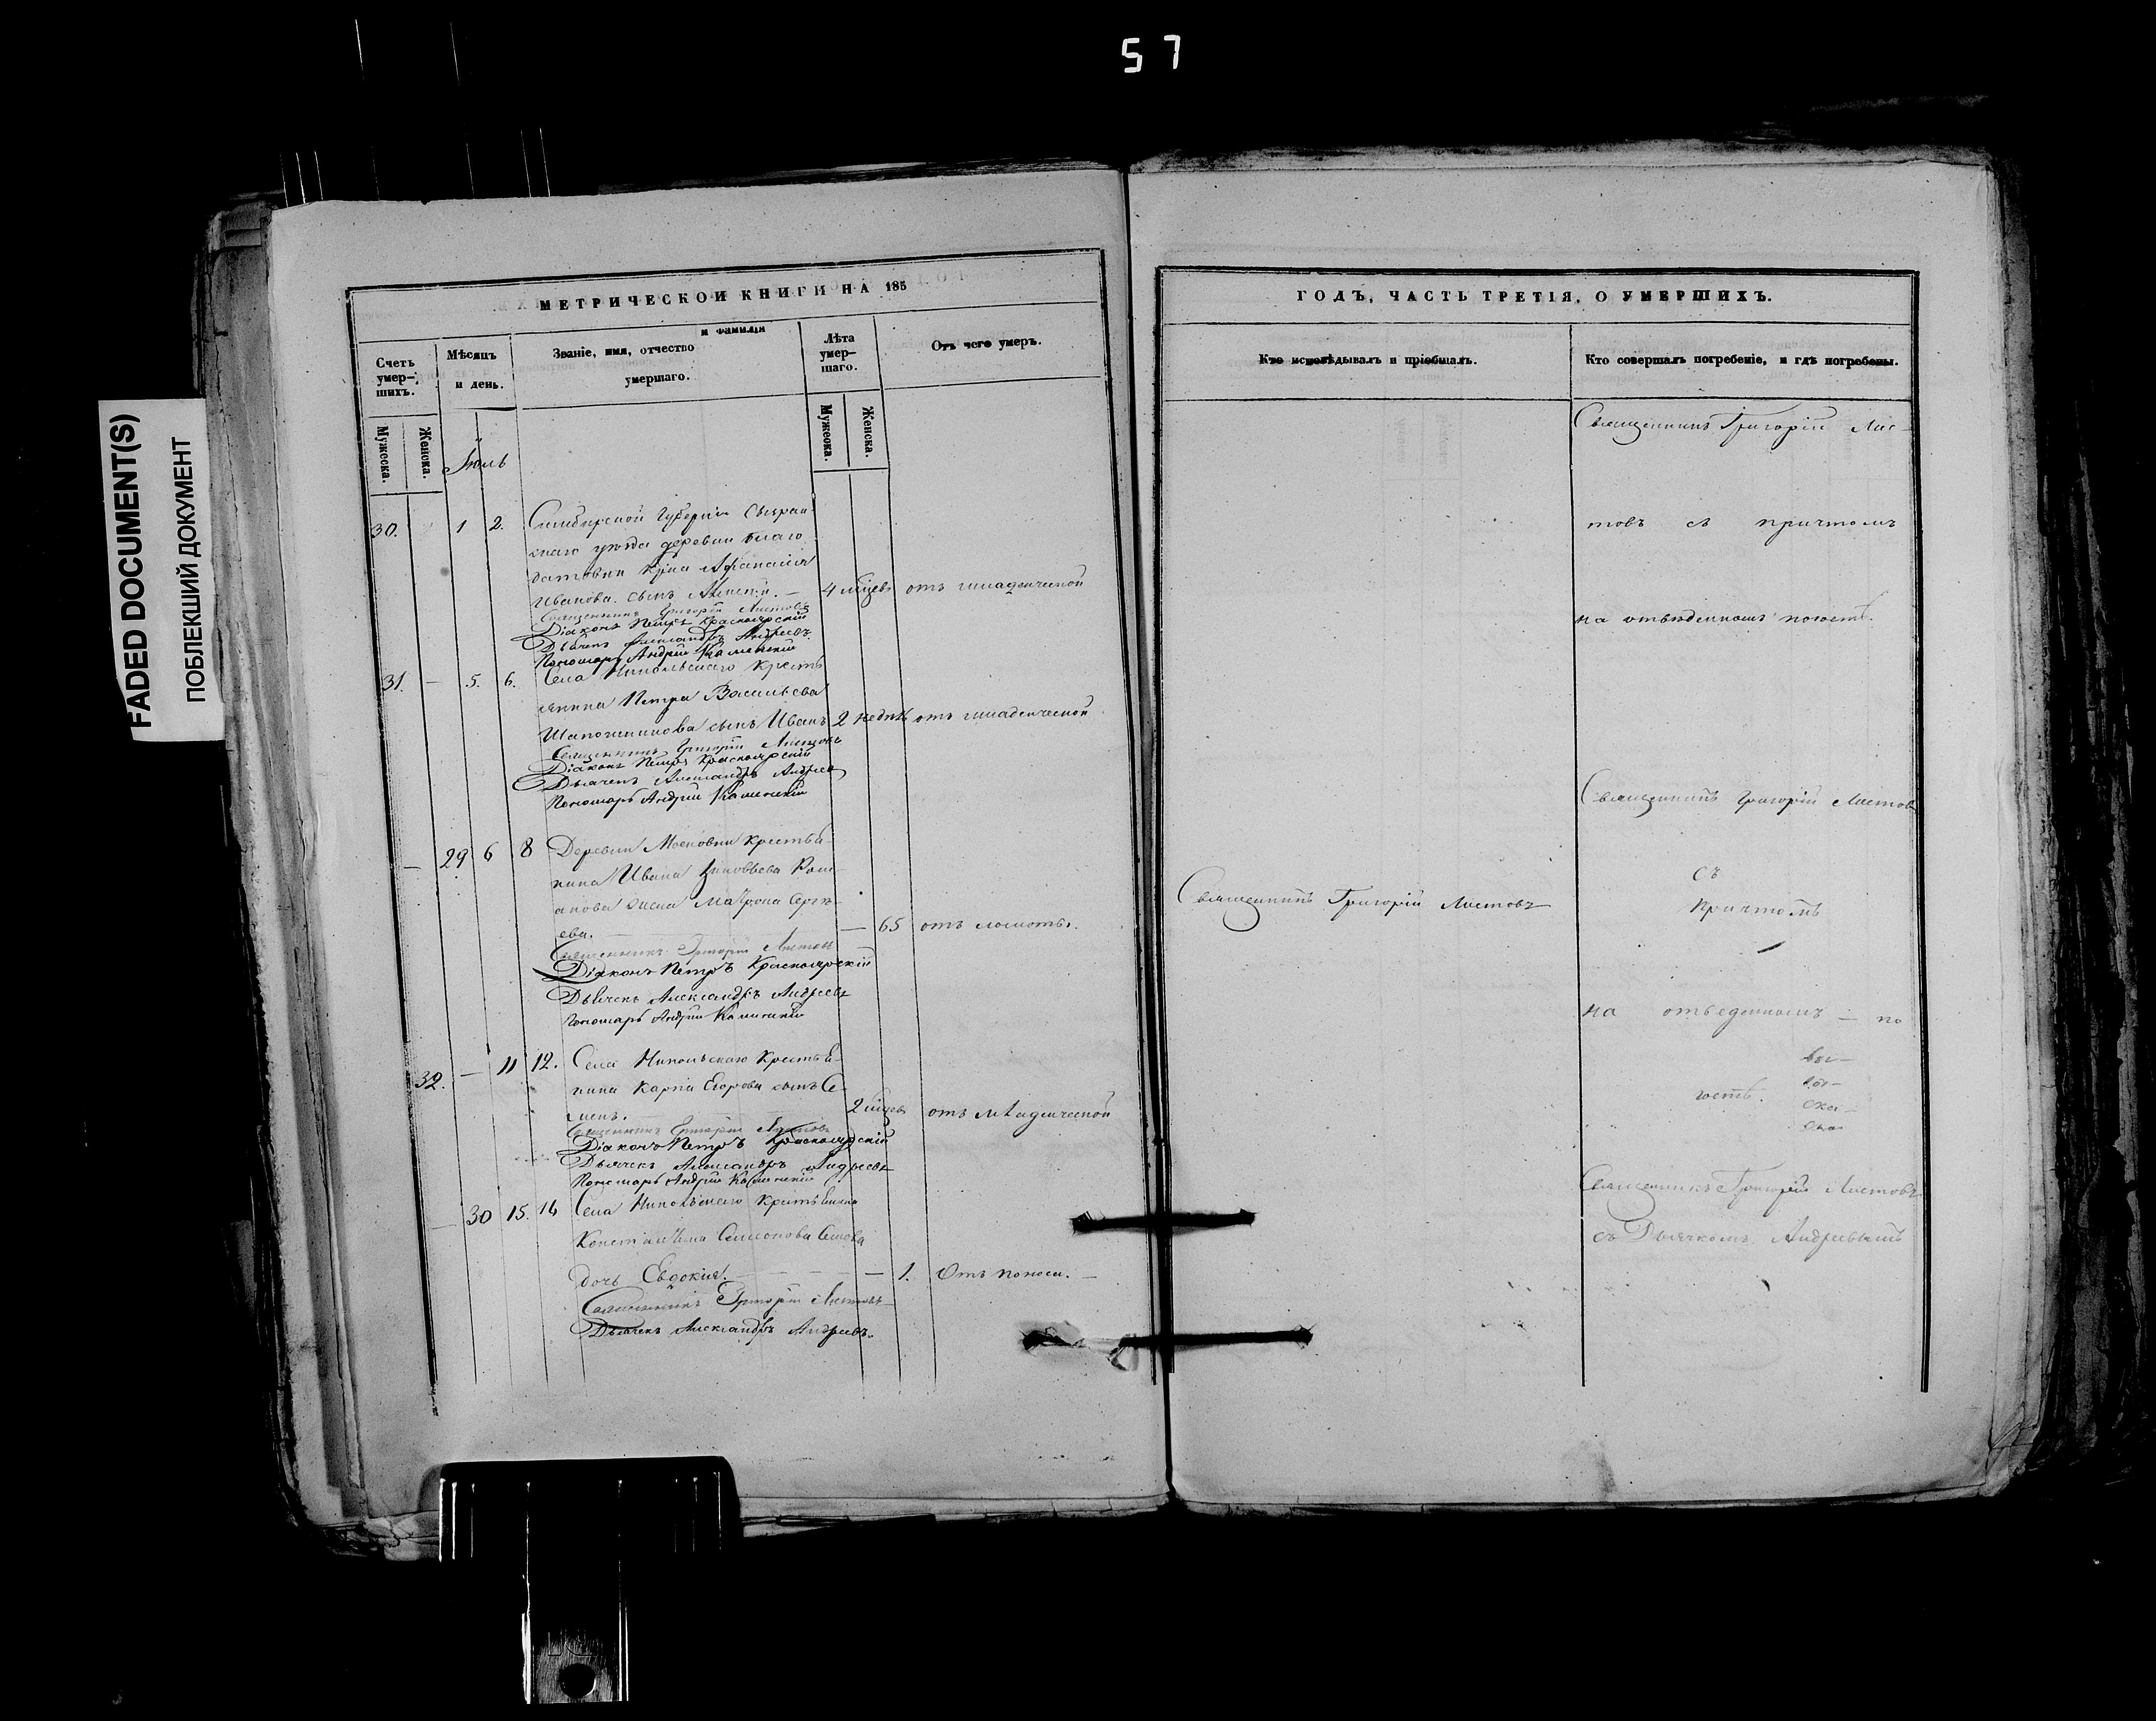 57
FADED DOCUMENT(S)
ПОБЛЕКШИЙ ДОКУМЕНТ
МЕТРИЧЕСКОЙ КНИГИ НА 185
Счетъ умер-шихъ.
Мѣсяцъ и день.
Званіе, имя, отчество и фамилія умершаго.
Лѣта умер-шаго.
Отъ чего умеръ.
Мужеска.
Женска.
Мужеска.
Женска.
Іюль
30. 1 2. Симбирской Губерніи Сызран
скаго уѣзда деревни Благо
датовки Афанасія
Иванова сынъ Алексѣй. — 4 мѣсцев отъ младенческой
Священникъ Григорій Листовъ
Діаконъ Петръ Красноярскій
Дьячекъ Александръ Андреевъ
Пономарь Андрей Каменскій
31. — 5. 6. Села Никольскаго кресть
янина Петра Васильева
Шапошникова сынъ Иванъ 2 недѣл отъ младенческой
Священникъ Григорій Листовъ
Діаконъ Петръ Красноярскій
Дьячекъ Александръ Андреев
Пономарь Андрей Каменскій
— 29 6 8 Деревни Московки крестья-
нина Ивана Зиновьева Ром-
анова жена Матрона Сергѣ-
ева. — 65 отъ ломоты.
Священникъ Григорій Листовъ
Діаконъ Петръ Красноярскій
Дьячекъ Александръ Андреевъ
Пономарь Андрей Каменскій
32. — 11 12. Села Никольскаго крестья-
нина Карпа Егорова сынъ Се-
менъ. 2 мѣсцев отъ младенческой
Священникъ Григорій Листовъ
Діаконъ Петръ Красноярскій
Дьячекъ Александръ Андреевъ
Пономарь Андрей Каменскій
— 30 15. 16 Села Никольскаго крестьянина
Константина Симонова
дочь Евдокия. — — — — 1. Отъ поноса. —
Священникъ Григорій Листовъ
Дьячекъ Александръ Андреевъ.
ГОДЪ, ЧАСТЬ ТРЕТІЯ, О УМЕРШИХЪ.
Кто исповѣдывалъ и пріобщалъ.
Кто совершалъ погребеніе, и гдѣ погребены.
Священникъ Григорій Лис-
товъ съ причтомъ
на отведенномъ погостѣ.
Священникъ Григорій Листовъ
Священникъ Григорій Листовъ
съ
причтомъ
на отведенномъ — по
гостѣ.
Священникъ Григорій Листовъ
съ Дьячкомъ Андреевымъ